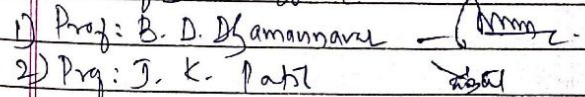 1) Prof: B. D. Dhamannavar -
2) Prof: J. K. Patil